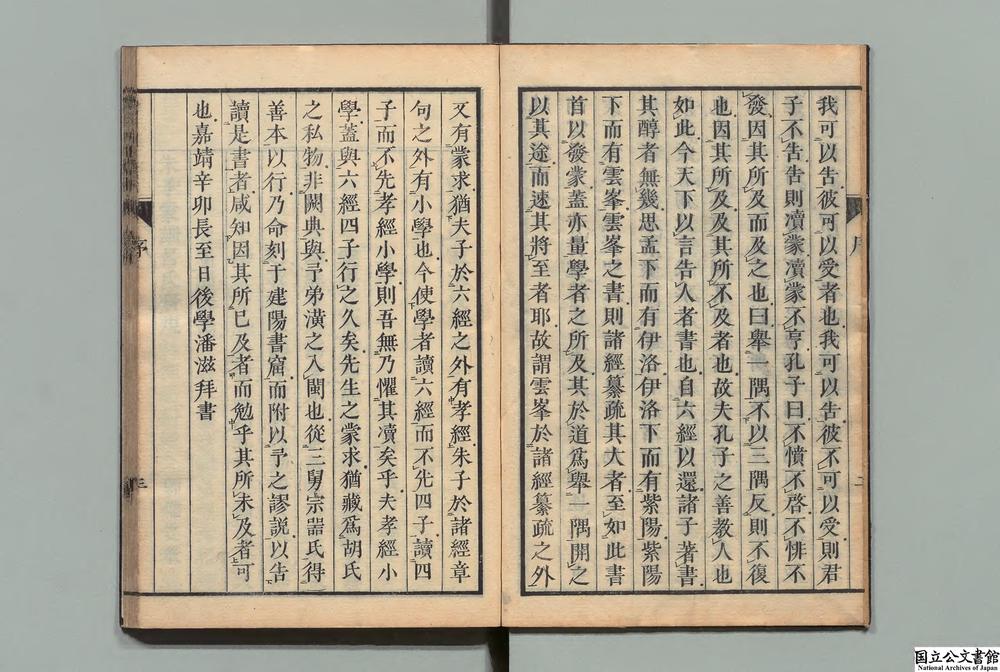 我可以告彼可以受者也我可以告彼不可以受則君
子不告告則凟蒙凟蒙不亨孔子曰不憤不啓不悱不
發因其所及而及之也曰舉一隅不以三隅反則不復
也因其所及及其所不及者也故夫孔子之善教人也
如此今天下以言告人者書也自六經以還諸子著書
其醇者無幾思孟下而有伊洛伊洛下而有紫陽紫陽
下而有雲峯雲峯之書則諸經纂疏其大者至如此書
首以發蒙蓋亦量學者之所及其於道爲舉一隅開之
以其途而速其將至者耶故謂雲峯於諸經纂疏之外
序
二
又有蒙求猶夫子於六經之外有孝經朱子於諸經章
句之外有小學也今使學者讀六經而不先四子讀四
子而不先孝經小學則吾無乃懼其凟矣乎夫孝經小
學蓋與六經四子行之久矣先生之蒙求猶藏爲胡氏
之私物非闕典與予弟潢之入閩也從三舅宗器氏得
善本以行乃命刻于建陽書窟而附以予之謬説以告
讀是書者咸知因其所已及者而勉乎其所未及者可
也嘉靖辛卯長至日後學潘滋拜書
序
三
国立公文書館
National Archives of Japan